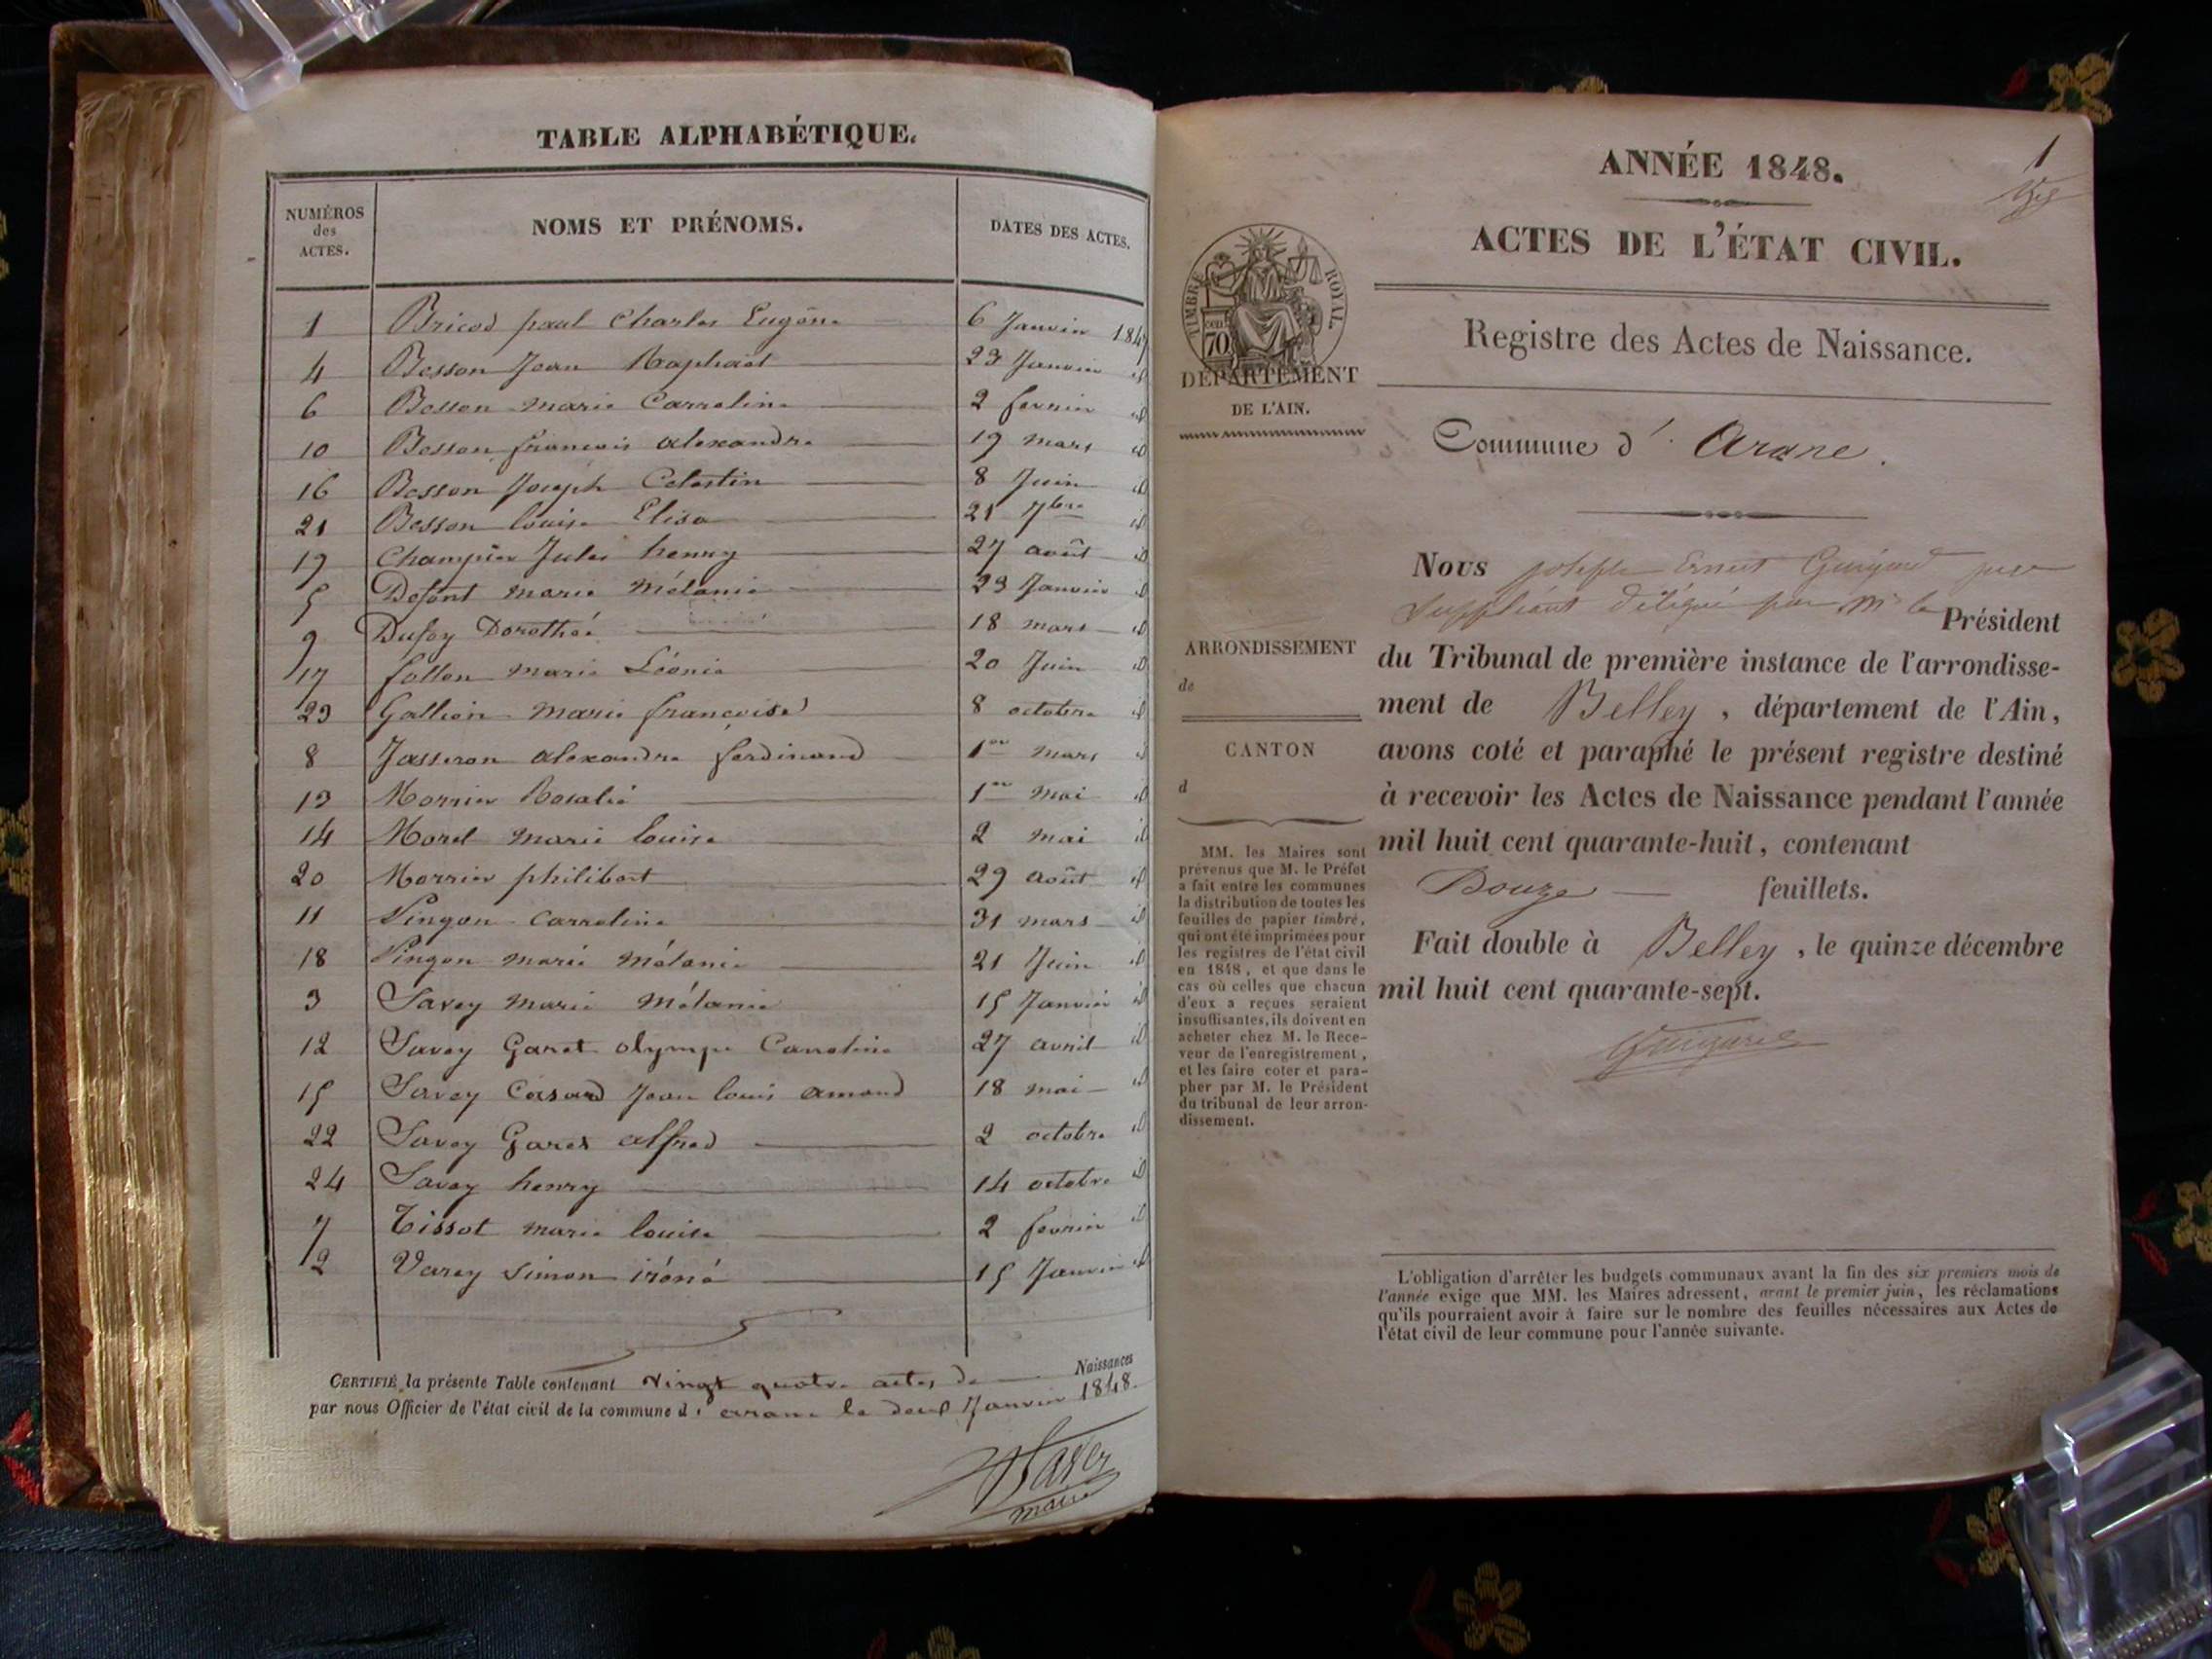 TABLE ALPHABÉTIQUE.
NUMÉROS
des
ACTES.
NOMS ET PRÉNOMS.
DATES DES ACTES.
1 Bricod paul Charles Eugène 6 Janvier 184
4 Besson Jean Raphaël 23 Janvier id
6 Besson marie Carroline 2 fevrier id
10 Besson françois alexandre 19 mars id
16 Besson Joseph Celestin 8 Juin id
21 Besson louise Elisa 21 7bre id
19 Champier Jules henry 27 août id
5 Defont marie mélanie 23 Janvier id
9 Dufay Dorothée 18 mars id
17 follon marie Léonie 20 Juin id
23 Gallion marie françoise 8 octobre id
8 Jasseron alexandre ferdinand 1er mars id
13 Morrier Rosalie 1er mai id
14 Morel marie louise 2 mai id
20 Morrier philibert 29 août id
11 Pingon Carroline 31 mars id
18 Pingon marie mélanie 21 Juin id
3 Savey marie mélanie 15 Janvier id
12 Savey Garet olympe Carroline 27 avril id
15 Savey Casard Jean louis amand 18 mai id
22 Savey Garet alfred 2 octobre id
24 Savey henry 14 octobre id
7 Tissot marie louise 2 fevrier id
2 Varey Simon iréné 15 Janvier id
CERTIFIÉ la présente Table contenant vingt quatre actes de Naissances
par nous Officier de l'état civil de la commune d' arane le deux Janvier 1848.
maire
1
ANNÉE 1848.
ACTES DE L'ÉTAT CIVIL.
TIMBRE ROYAL.
cen
70
DÉPARTEMENT
DE L'AIN.
Registre des Actes de Naissance.
Commune d' Arane.
Nous joseph Ernest juge
Suppléant délégué par Mr le Président
du Tribunal de première instance de l'arrondisse-
ment de Belley, département de l'Ain,
avons coté et paraphé le présent registre destiné
à recevoir les Actes de Naissance pendant l'année
mil huit cent quarante-huit, contenant
Douze feuillets.
Fait double à Belley, le quinze décembre
mil huit cent quarante-sept.
ARRONDISSEMENT
de
CANTON
d
MM. les Maires sont
prévenus que M. le Préfet
a fait entre les communes
la distribution de toutes les
feuilles de papier timbré,
qui ont été imprimées pour
les registres de l'état civil
en 1848, et que dans le
cas où celles que chacun
d'eux a reçues seraient
insuffisantes, ils doivent en
acheter chez M. le Rece-
veur de l'enregistrement,
et les faire coter et para-
pher par M. le Président
du tribunal de leur arron-
dissement.
L'obligation d'arrêter les budgets communaux avant la fin des six premiers mois de
l'année exige que MM. les Maires adressent, avant le premier juin, les réclamations
qu'ils pourraient avoir à faire sur le nombre des feuilles nécessaires aux Actes de
l'état civil de leur commune pour l'année suivante.